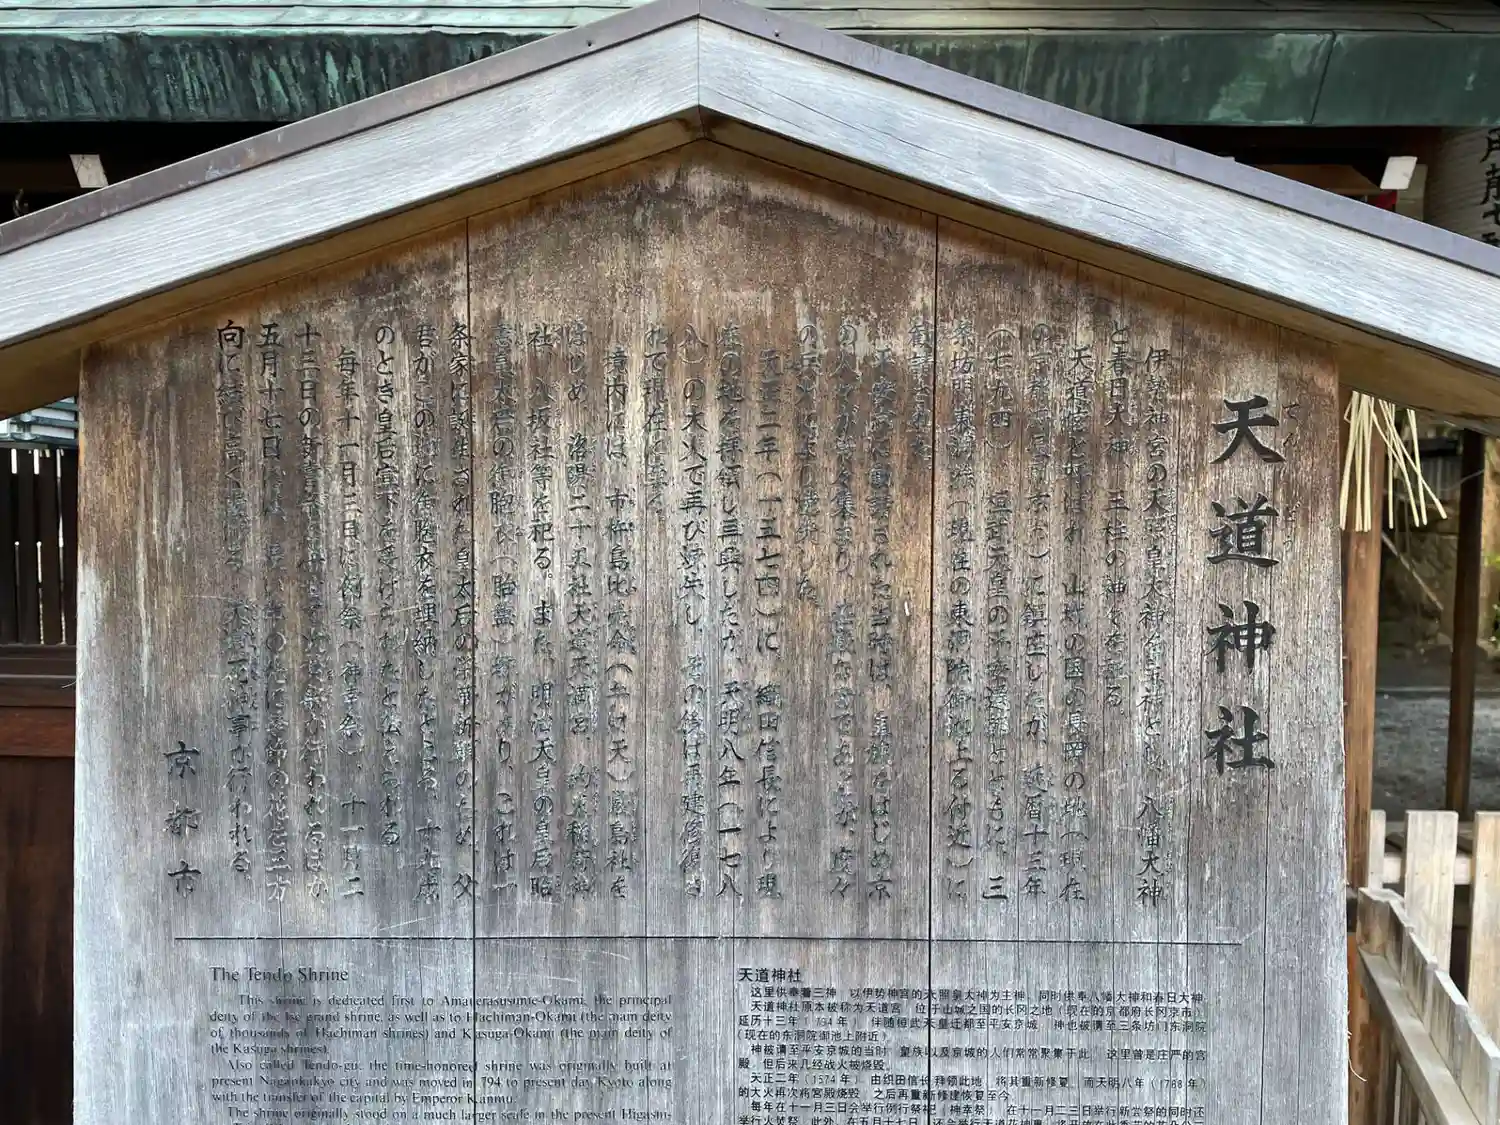 天道神社
てんどう
伊勢神宮の天照皇大神を主神とし、八幡大神
と春日大神、三柱の神々を祀る。
天道宮と呼ばれ、山城の国の長岡の地(現在
の京都府長岡京市)に鎮座したが、延暦十三年
(七九四)、桓武天皇の平安遷都とともに、三
条坊門東洞院(現在の東洞院御池上る付近)に
勧請された。
平安京に勧請された当時は、皇族をはじめ京
の人々が常々集まり、壮厳な宮であったが、度々
の兵火により焼失した。
天正二年(一五七四)に、織田信長により現
在の地を拝領し再興したが、天明八年(一七八
八)の大火で再び焼失し、その後は再建修復さ
れて現在に至る。
境内には、市杵島比売命(弁財天)厳島社を
はじめ、洛陽二十五社天道天満宮、約束稲荷神
社、八坂社等を祀る。また、明治天皇の皇后昭
憲皇太后の御胞衣(胎盤)塚があり、これは一
条家に誕生された皇太后の栄華祈願のため、父
君がこの地に御胞衣を埋納したとある。十九歳
のとき皇后宣下を受けられたと伝えられる。
毎年十一月三日に例祭(神幸祭)、十一月二
十三日の新嘗祭に併せてお火焚祭が行われるほか
五月十七日には、
向に結び高く掲げる、天道花神事が行われる。
京都市
The Tendo Shrine
This shrine is dedicated first to Amaterasusume-Okami, the principal
deity of the Ise grand shrine, as well as to Hachiman-Okami (the main deity
of thousands of Hachiman shrines) and Kasuga-Okami (the main deity of
the Kasuga shrines).
Also called Tendo-gu, the time-honored shrine was originally built at
present Nagaokakyo city and was moved in 794 to present day Kyoto along
with the transfer of the capital by Emperor Kanmu.
The shrine originally stood on a much larger scale in the present Higashi-
天道神社
这里供奉着三神,以伊势神宫的天照皇大神为主神,同时供奉八幡大神和春日大神。
天道神社原本被称为天道宮,位于山城之国的长冈之地(现在的京都府长冈京市)。
延历十三年(794年),伴随恒武天皇迁都至平安京城,神也被请至三条坊门东洞院
(现在的东洞院御池上附近)。
神被请至平安京城的当时,皇族以及京城的人们常常聚集于此,这里曾是庄严的宫
殿,但后来几经战火被烧毁。
天正二年(1574年),由织田信长拜领此地,将其重新修复。而天明八年(1788年)
的大火再次将宮殿烧毁,之后再重新修建恢复至今。
每年在十一月三日会举行例行祭祀(神幸祭),在十一月二三日举行新尝祭的同时还